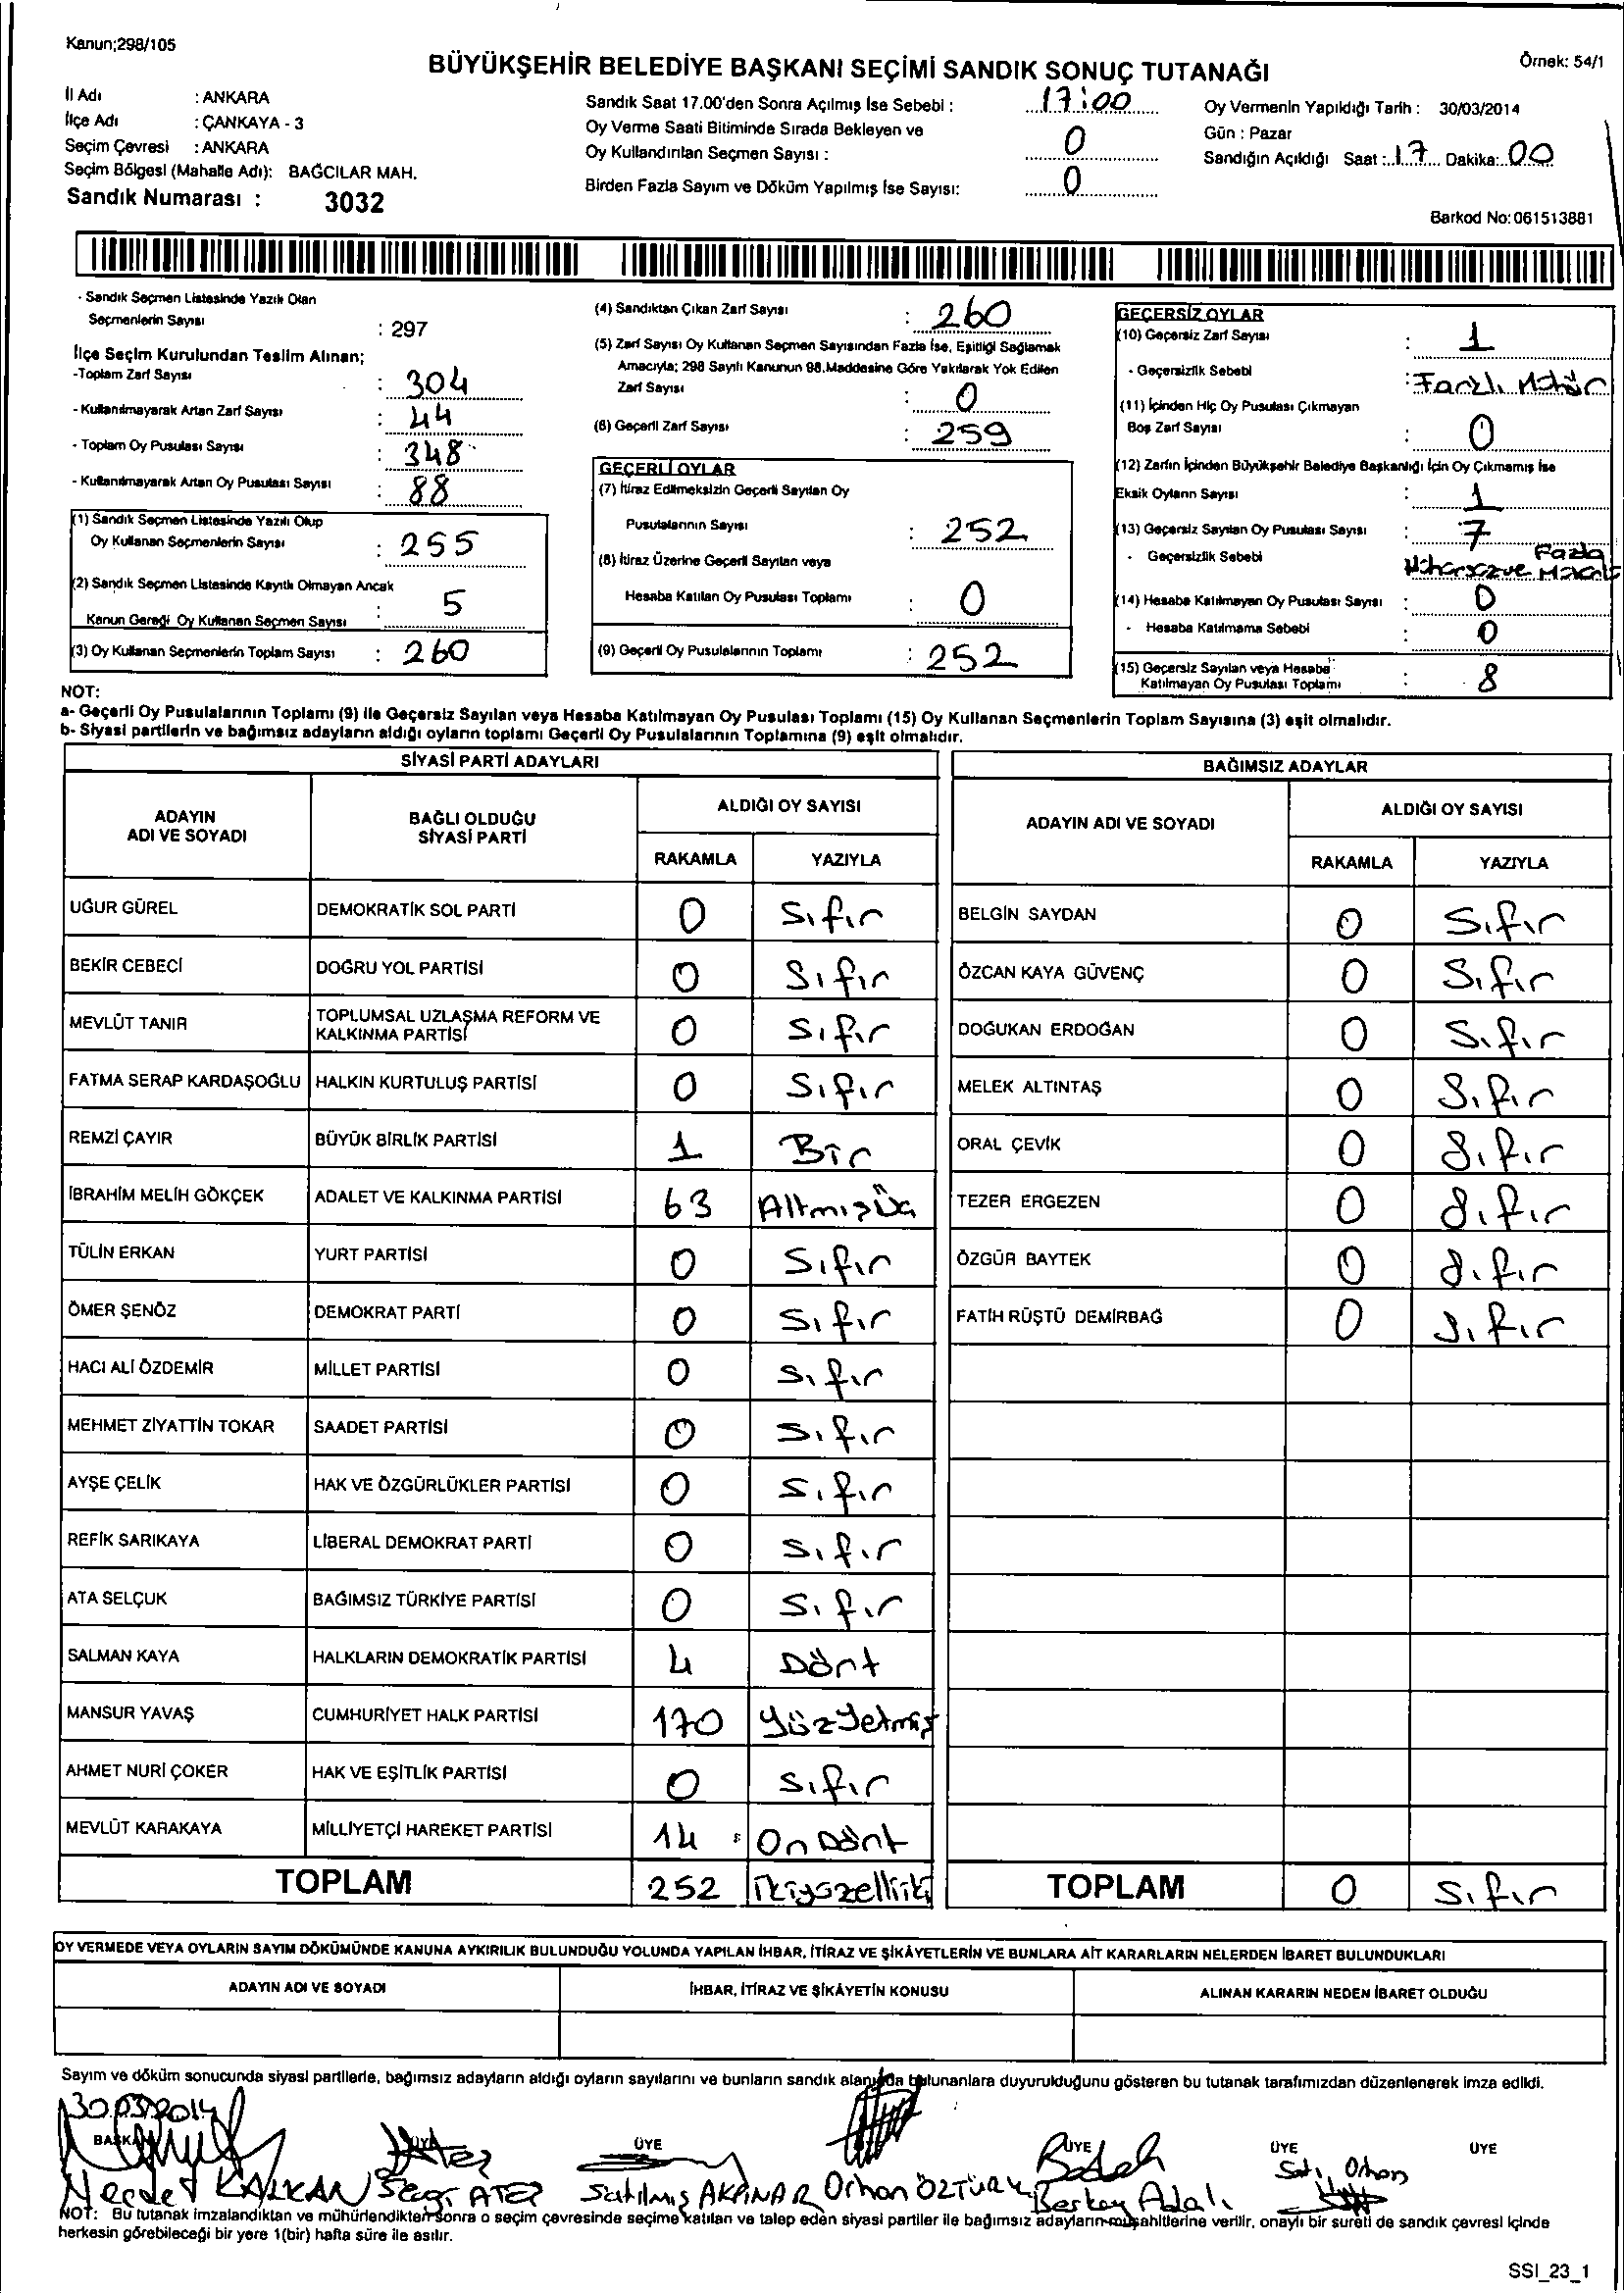 Kanun;298/105
BÜYÜKŞEHİR BELEDİYE BAŞKANI SEÇİMİ SANDIK SONUÇ TUTANAĞI
Örnek: 54/1
İl Adı : ANKARA
İlçe Adı : ÇANKAYA - 3
Seçim Çevresi : ANKARA
Seçim Bölgesi (Mahalle Adı): BAĞCILAR MAH.
Sandık Numarası : 3032
Sandık Saat 17.00'den Sonra Açılmış İse Sebebi : 17:00
Oy Verme Saati Bitiminde Sırada Bekleyen ve
Oy Kullandırılan Seçmen Sayısı : 0
Birden Fazla Sayım ve Döküm Yapılmış İse Sayısı: 0
Oy Vermenin Yapıldığı Tarih : 30/03/2014
Gün : Pazar
Sandığın Açıldığı Saat : 17 Dakika: 00
Barkod No: 061513881
- Sandık Seçmen Listesinde Yazılı Olan
Seçmenlerin Sayısı : 297
İlçe Seçim Kurulundan Teslim Alınan;
-Toplam Zarf Sayısı : 304
- Kullanılmayarak Artan Zarf Sayısı : 44
- Toplam Oy Pusulası Sayısı : 348
- Kullanılmayarak Artan Oy Pusulası Sayısı : 88
(1) Sandık Seçmen Listesinde Yazılı Olup
Oy Kullanan Seçmenlerin Sayısı : 255
(2) Sandık Seçmen Listesinde Kayıtlı Olmayan Ancak
Kanun Gereği Oy Kullanan Seçmen Sayısı : 5
(3) Oy Kullanan Seçmenlerin Toplam Sayısı : 260
(4) Sandıktan Çıkan Zarf Sayısı : 260
(5) Zarf Sayısı Oy Kullanan Seçmen Sayısından Fazla İse, Eşitliği Sağlamak
Amacıyla; 298 Sayılı Kanunun 98.Maddesine Göre Yakılarak Yok Edilen
Zarf Sayısı : 0
(6) Geçerli Zarf Sayısı : 259
GEÇERLİ OYLAR
(7) İtiraz Edilmeksizin Geçerli Sayılan Oy
Pusulalarının Sayısı : 252
(8) İtiraz Üzerine Geçerli Sayılan veya
Hesaba Katılan Oy Pusulası Toplamı : 0
(9) Geçerli Oy Pusulalarının Toplamı : 252
GEÇERSİZ OYLAR
(10) Geçersiz Zarf Sayısı : 1
- Geçersizlik Sebebi : Farklı Mühür
(11) İçinden Hiç Oy Pusulası Çıkmayan
Boş Zarf Sayısı : 0
(12) Zarfın İçinden Büyükşehir Belediye Başkanlığı İçin Oy Çıkmamış İse
Eksik Oyların Sayısı : 1
(13) Geçersiz Sayılan Oy Pusulası Sayısı : 7
- Geçersizlik Sebebi Fazla
(14) Hesaba Katılmayan Oy Pusulası Sayısı : 0
- Hesaba Katılmama Sebebi : 0
(15) Geçersiz Sayılan veya Hesaba
Katılmayan Oy Pusulası Toplamı : 8
NOT:
a- Geçerli Oy Pusulalarının Toplamı (9) ile Geçersiz Sayılan veya Hesaba Katılmayan Oy Pusulası Toplamı (15) Oy Kullanan Seçmenlerin Toplam Sayısına (3) eşit olmalıdır.
b- Siyasi partilerin ve bağımsız adayların aldığı oyların toplamı Geçerli Oy Pusulalarının Toplamına (9) eşit olmalıdır.
SİYASİ PARTİ ADAYLARI
ADAYIN ADI VE SOYADI BAĞLI OLDUĞU SİYASİ PARTİ ALDIĞI OY SAYISI
RAKAMLA YAZIYLA
UĞUR GÜREL DEMOKRATİK SOL PARTİ 0 Sıfır
BEKİR CEBECİ DOĞRU YOL PARTİSİ 0 Sıfır
MEVLÜT TANIR TOPLUMSAL UZLAŞMA REFORM VE KALKINMA PARTİSİ 0 Sıfır
FATMA SERAP KARDAŞOĞLU HALKIN KURTULUŞ PARTİSİ 0 Sıfır
REMZİ ÇAYIR BÜYÜK BİRLİK PARTİSİ 1 Bir
İBRAHİM MELİH GÖKÇEK ADALET VE KALKINMA PARTİSİ 63 Altmışüç
TÜLİN ERKAN YURT PARTİSİ 0 Sıfır
ÖMER ŞENÖZ DEMOKRAT PARTİ 0 Sıfır
HACI ALİ ÖZDEMİR MİLLET PARTİSİ 0 Sıfır
MEHMET ZİYATTİN TOKAR SAADET PARTİSİ 0 Sıfır
AYŞE ÇELİK HAK VE ÖZGÜRLÜKLER PARTİSİ 0 Sıfır
REFİK SARIKAYA LİBERAL DEMOKRAT PARTİ 0 Sıfır
ATA SELÇUK BAĞIMSIZ TÜRKİYE PARTİSİ 0 Sıfır
SALMAN KAYA HALKLARIN DEMOKRATİK PARTİSİ 4 Dört
MANSUR YAVAŞ CUMHURİYET HALK PARTİSİ 170 YüzYetmiş
AHMET NURİ ÇOKER HAK VE EŞİTLİK PARTİSİ 0 Sıfır
MEVLÜT KARAKAYA MİLLİYETÇİ HAREKET PARTİSİ 14 On Dört
TOPLAM 252 İkiyüzelliiki
BAĞIMSIZ ADAYLAR
ADAYIN ADI VE SOYADI ALDIĞI OY SAYISI
RAKAMLA YAZIYLA
BELGİN SAYDAN 0 Sıfır
ÖZCAN KAYA GÜVENÇ 0 Sıfır
DOĞUKAN ERDOĞAN 0 Sıfır
MELEK ALTINTAŞ 0 Sıfır
ORAL ÇEVİK 0 Sıfır
TEZER ERGEZEN 0 Sıfır
ÖZGÜR BAYTEK 0 Sıfır
FATİH RÜŞTÜ DEMİRBAĞ 0 Sıfır
TOPLAM 0 Sıfır
OY VERMEDE VEYA OYLARIN SAYIM DÖKÜMÜNDE KANUNA AYKIRILIK BULUNDUĞU YOLUNDA YAPILAN İHBAR, İTİRAZ VE ŞİKÂYETLERİN VE BUNLARA AİT KARARLARIN NELERDEN İBARET BULUNDUKLARI
ADAYIN ADI VE SOYADI İHBAR, İTİRAZ VE ŞİKÂYETİN KONUSU ALINAN KARARIN NEDEN İBARET OLDUĞU
Sayım ve döküm sonucunda siyasi partilerle, bağımsız adayların aldığı oyların sayılarını ve bunların sandık alanında bulunanlara duyurulduğunu gösteren bu tutanak tarafımızdan düzenlenerek imza edildi.
30.03.2014
BAŞKAN ÜYE ÜYE ÜYE ÜYE ÜYE
Necdet KALKAN Sezgi ATEŞ Satılmış AKPINAR Orhan ÖZTÜRK Berkay Adalı Satı Orhan
NOT: Bu tutanak imzalandıktan ve mühürlendikten sonra o seçim çevresinde seçime katılan ve talep eden siyasi partiler ile bağımsız adayların müşahitlerine verilir, onaylı bir sureti de sandık çevresi içinde
herkesin görebileceği bir yere 1(bir) hafta süre ile asılır.
SSI_23_1